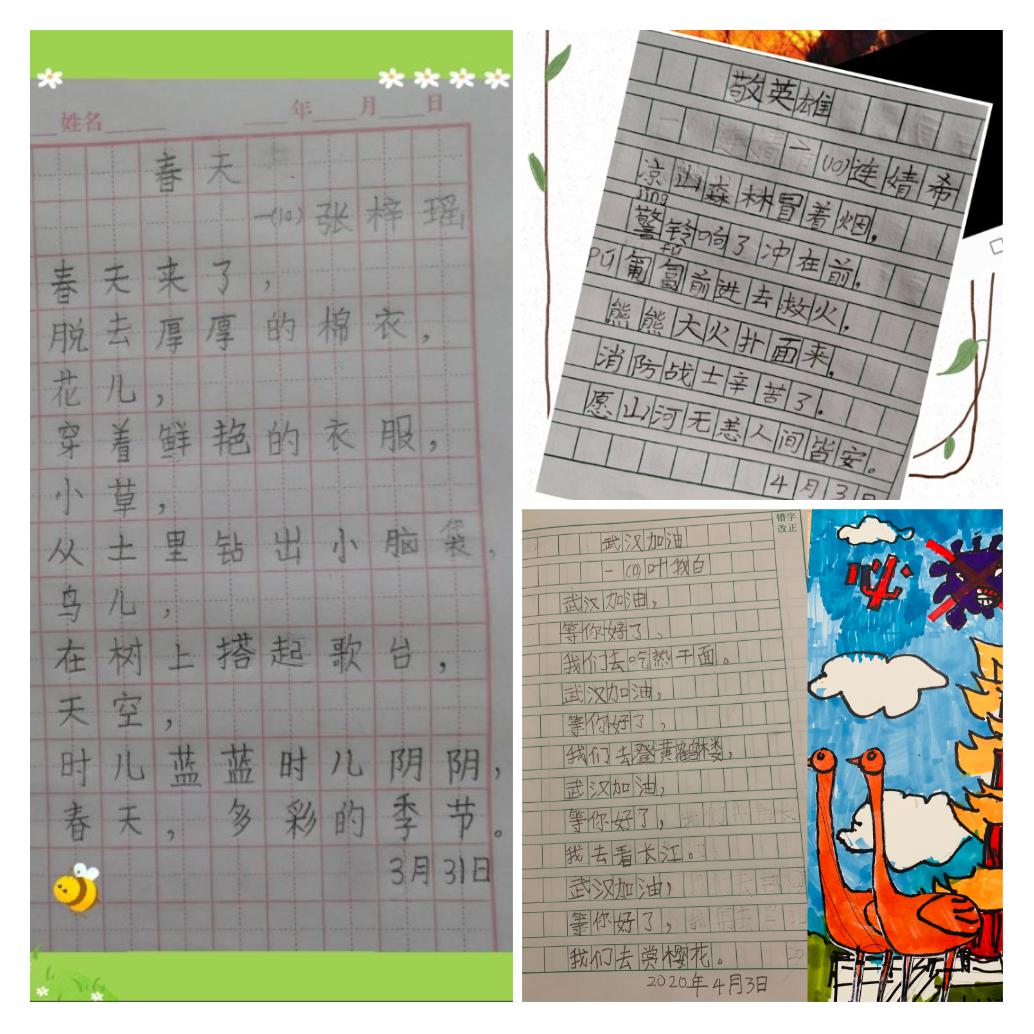 姓名 年 月 日
春天
一(10)张梓瑶
春天来了，
脱去厚厚的棉衣，
花儿，
穿着鲜艳的衣服，
小草，
从土里钻出小脑袋，
鸟儿，
在树上搭起歌台，
天空，
时儿蓝蓝时儿阴阴，
春天，多彩的季节。
3月31日
敬英雄
一(10)连婧希
凉山森林冒着烟，
jing
警铃响了冲在前，
pú fú
匍匐前进去救火，
熊熊大火扑面来，
消防战士辛苦了，
愿山河无恙人间皆安。
4月3日
错字
改正
武汉加油
一(10)叶我白
武汉加油，
等你好了，
我们去吃热干面。
武汉加油，
等你好了，
我们去登黄鹤楼，
武汉加油，
等你好了，
我去看长江。
武汉加油，
等你好了，
我们去赏樱花。
20
2020年4月3日